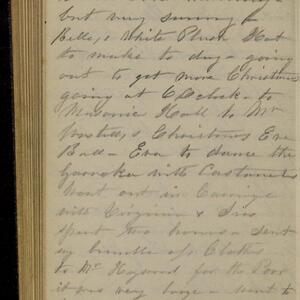 but very sunny &
Bells, & White Plush Hat
to make to day - going
out to get more Christmas
going at 6 O'clock - to
Masonic Hall to Mr
Christmas Eve
Ball - Eva to dance the
with Castanets
Went out in Carriage
with Virginia & Ines
spent two hours - sent
my bundle of Clothes
to Mr Heywood for the Poor
it was very large - went to